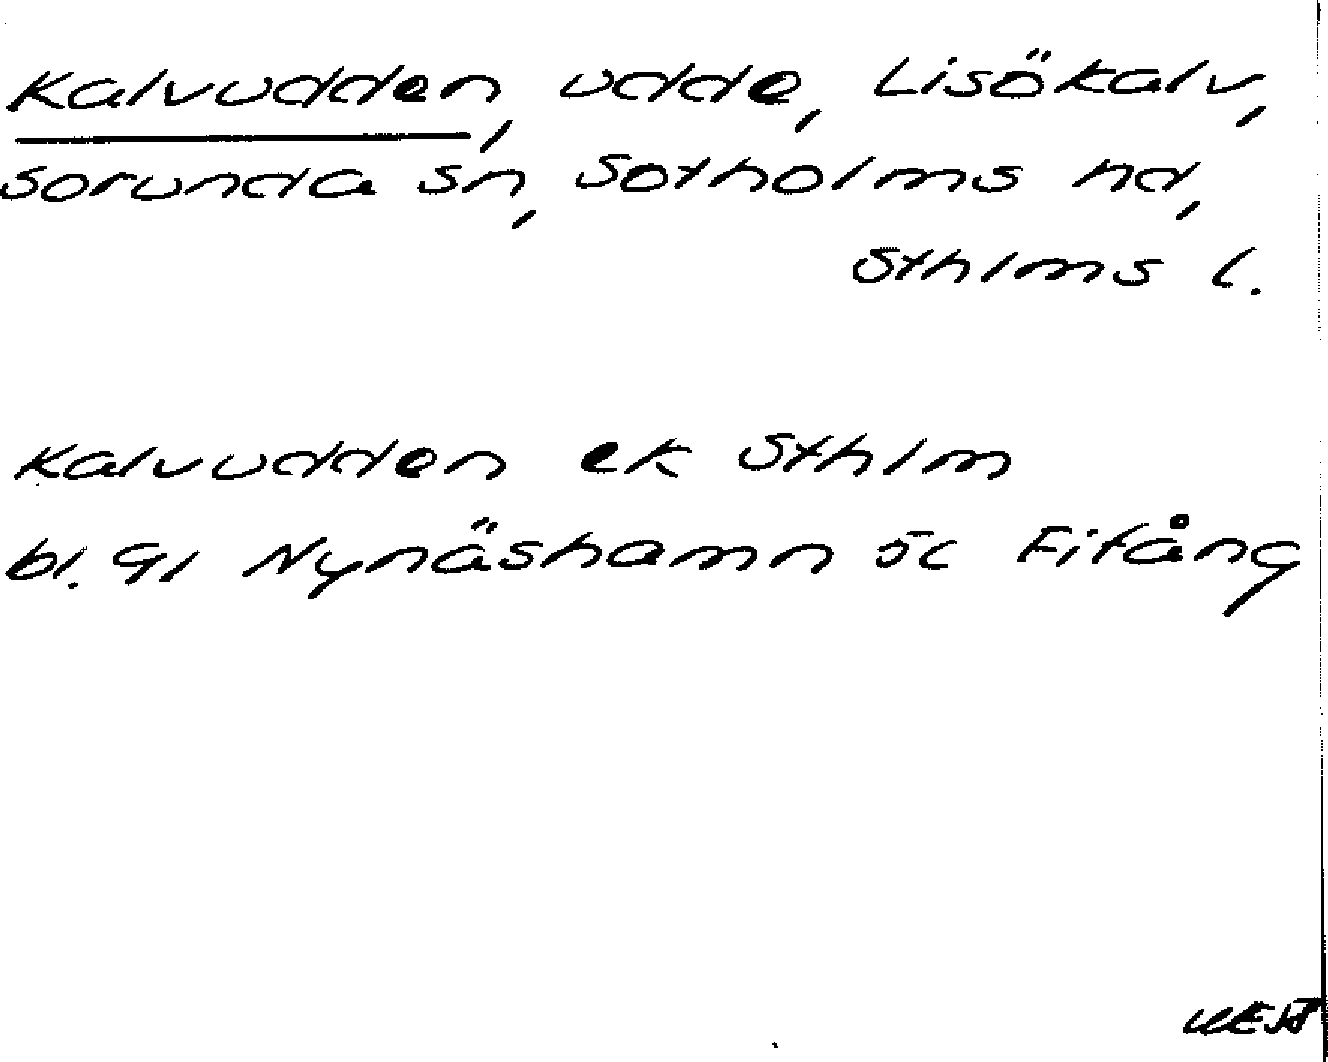 Kalvudden, udde, Lisökalv,
Sorunda sn, Sotholms hd,
Sthlms l.
Kalvudden ek Sthlm
bl. 91 Nynäshamn 5c Fifång